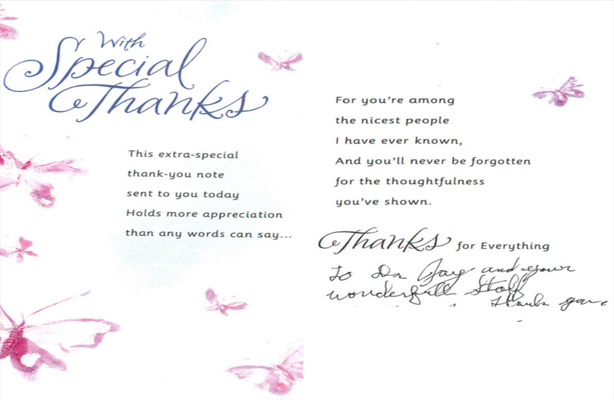 With
Special
Thanks
This extra-special
thank-you note
sent to you today
Holds more appreciation
than any words can say...
For you're among
the nicest people
I have ever known,
And you'll never be forgotten
for the thoughtfulness
you've shown.
Thanks for Everything
To Dr Jay and your
wonderfull Staff
Thank